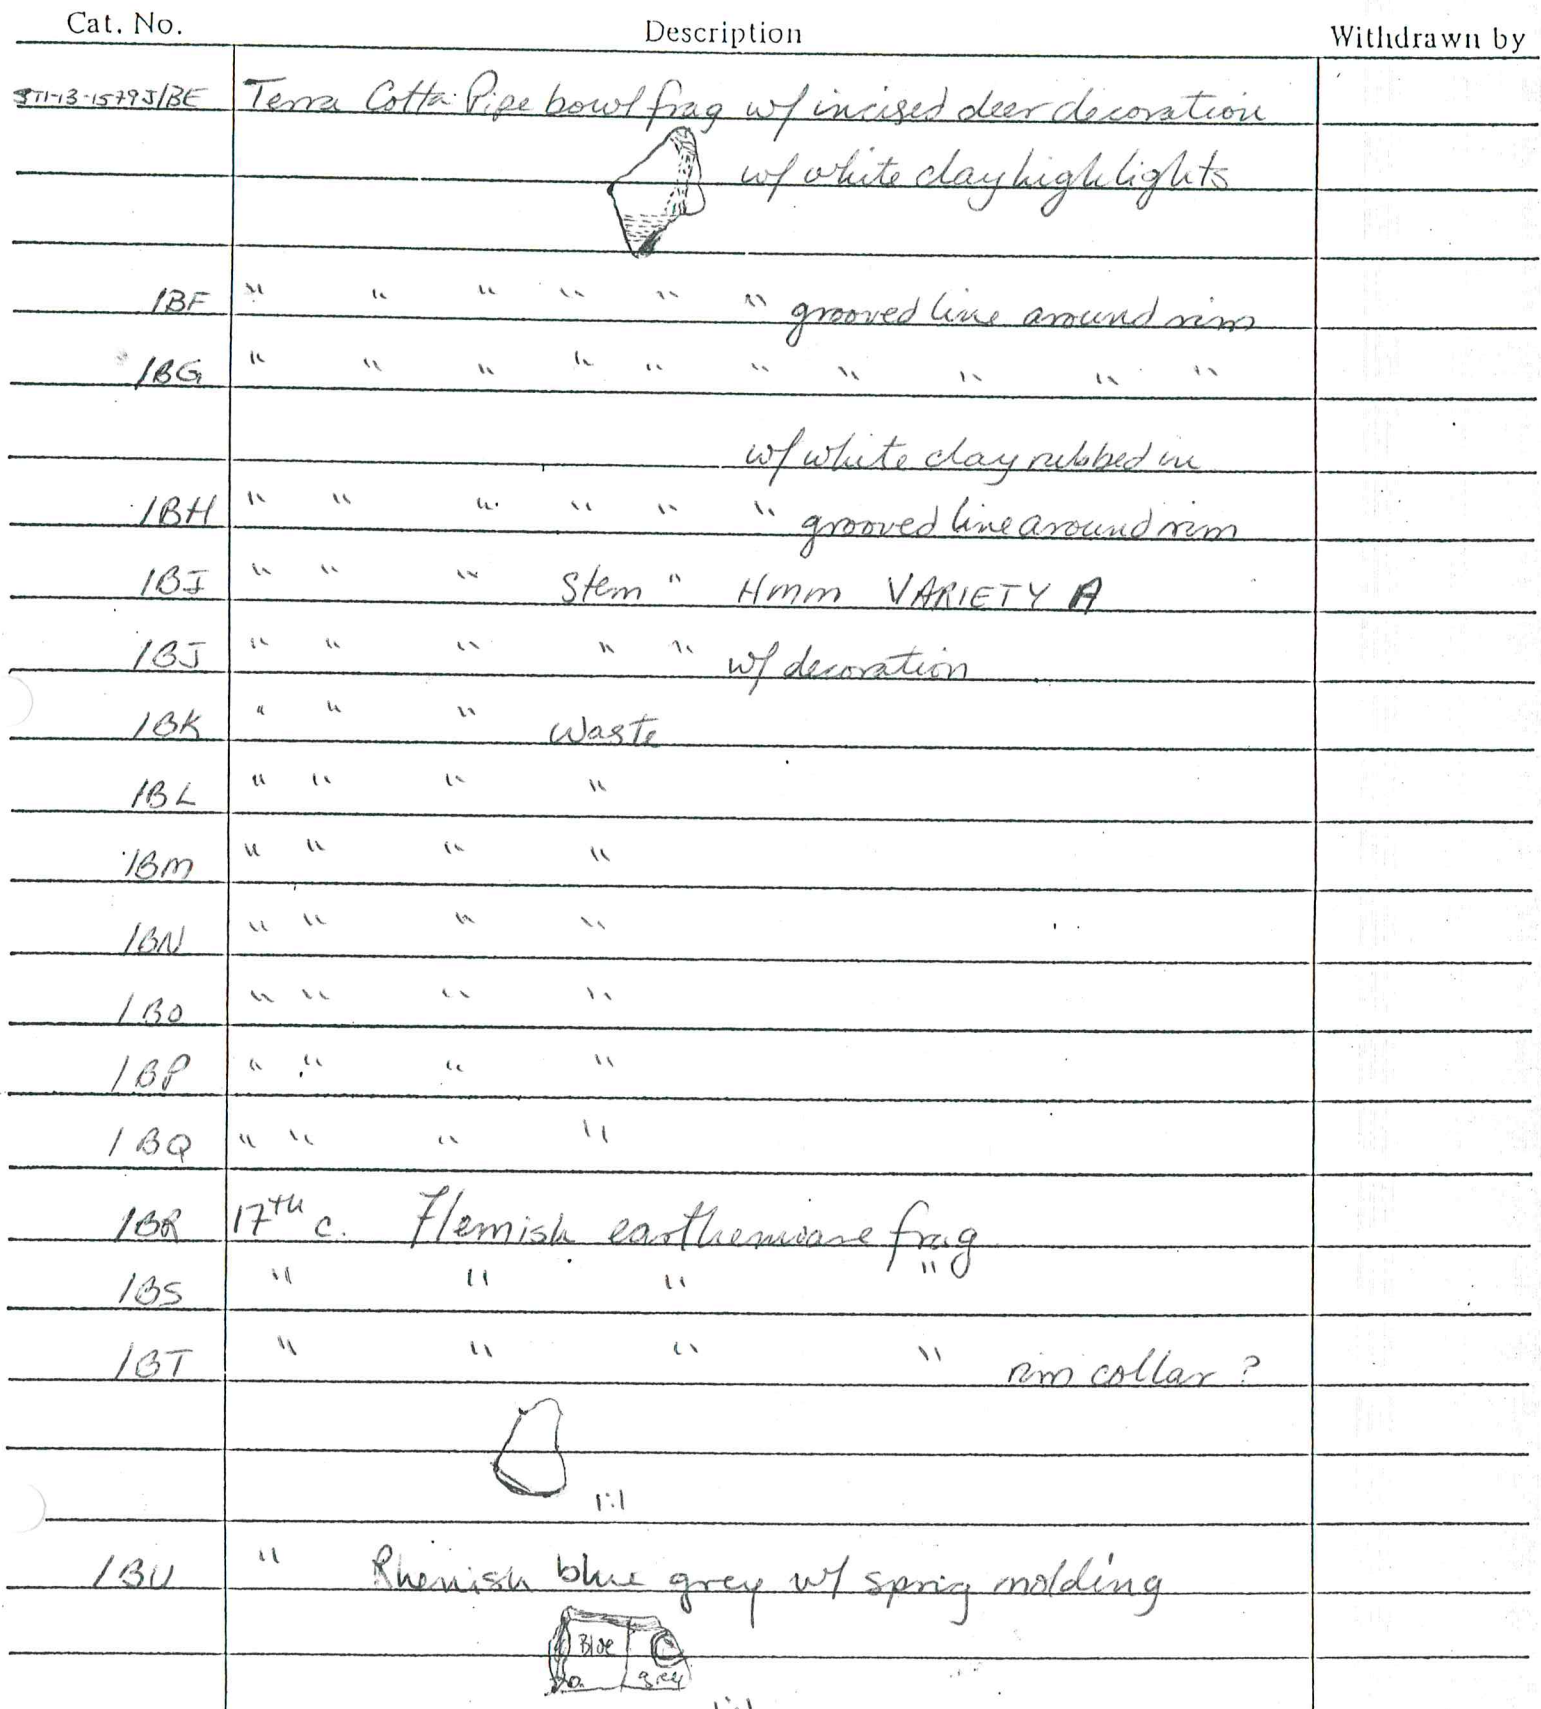 Cat. No. Description Withdrawn by
ST1-13-1579J/BE Terra Cotta Pipe bowl frag w/ incised deer decoration
w/ white clay highlights
/BF " " " " " " grooved line around rim
/BG " " " " " " " " " "
w/ white clay rubbed in
/BH " " " " " " grooved line around rim
/BI " " " Stem " Hmm VARIETY A
/BJ " " " " " w/ decoration
/BK " " " Waste
/BL " " " "
/BM " " " "
/BN " " " "
/BO " " " "
/BP " " " "
/BQ " " " "
/BR 17th c. Flemish earthenware frag
/BS " " " "
/BT " " " " rim collar ?
1:1
/BU " Rhenish blue grey w/ sprig molding
Blue
grey
1:1